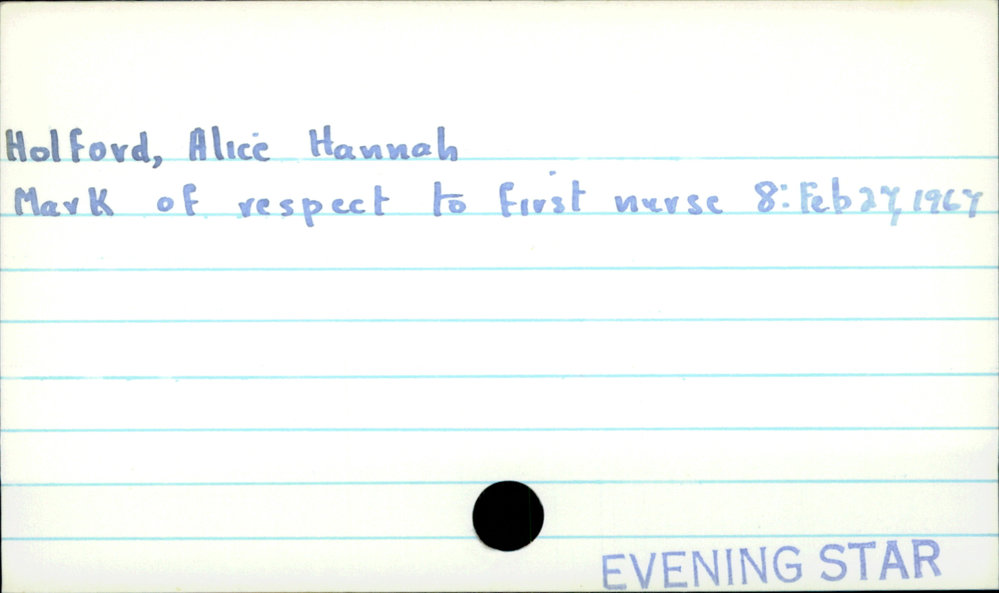 Holford, Alice Hannah
Mark of respect to first nurse 8: Feb 27, 1967
EVENING STAR